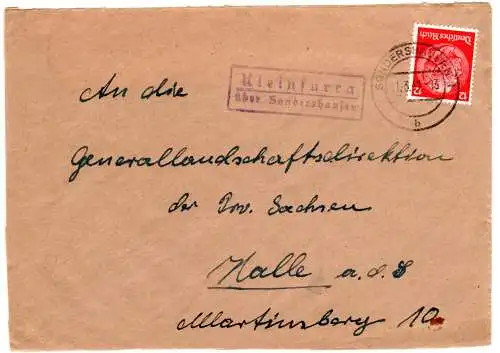 Deutsches Reich
12 12
SONDERSHAUSEN
b
Kleinfurra
über Sondershausen
An die
Generallandschaftsdirektion
der Prv. Sachsen
Halle a.d.S
Martinsberg 10